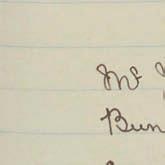 Mr
Bun